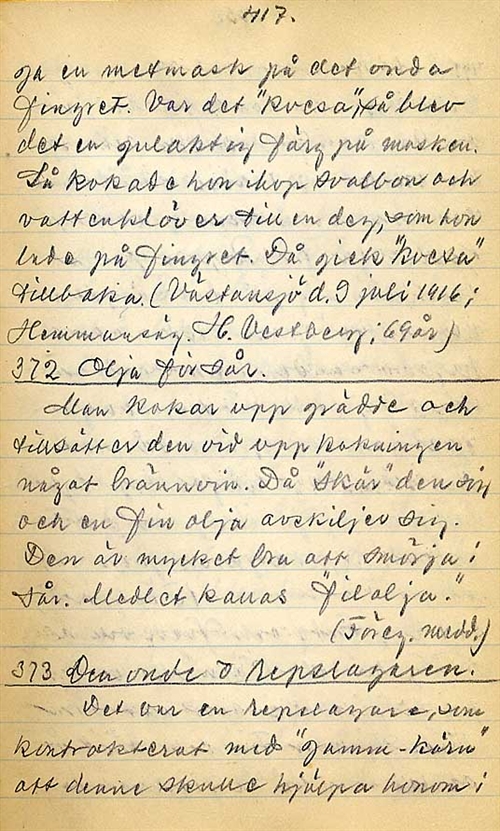 417.
ga en metmask på det onda
fingret. Var det "kvesa", så blev
det en gulaktig färg på masken.
Så kokade hon ihop svalbon och
vattenklöver till en deg, som hon
lade på fingret. Då gick "kvesa"
tillbaka. (Västansjö d. 9 juli 1916;
Hemmansäg. H. Vestberg; 69 år)
372 Olja för sår.
Man kokar upp grädde och
tillsätter den vid uppkokningen
något brännvin. Då "skär" den sig
och en fin olja avskiljer sig.
Den är mycket bra att smörja i
sår. Medlet kallas "filolja."
(Föreg. medd.)
373 Den onde o repslagaren.
Det var en repslagare, som
kontrakterat med "gamm-kärn"
att denne skulle hjälpa honom i